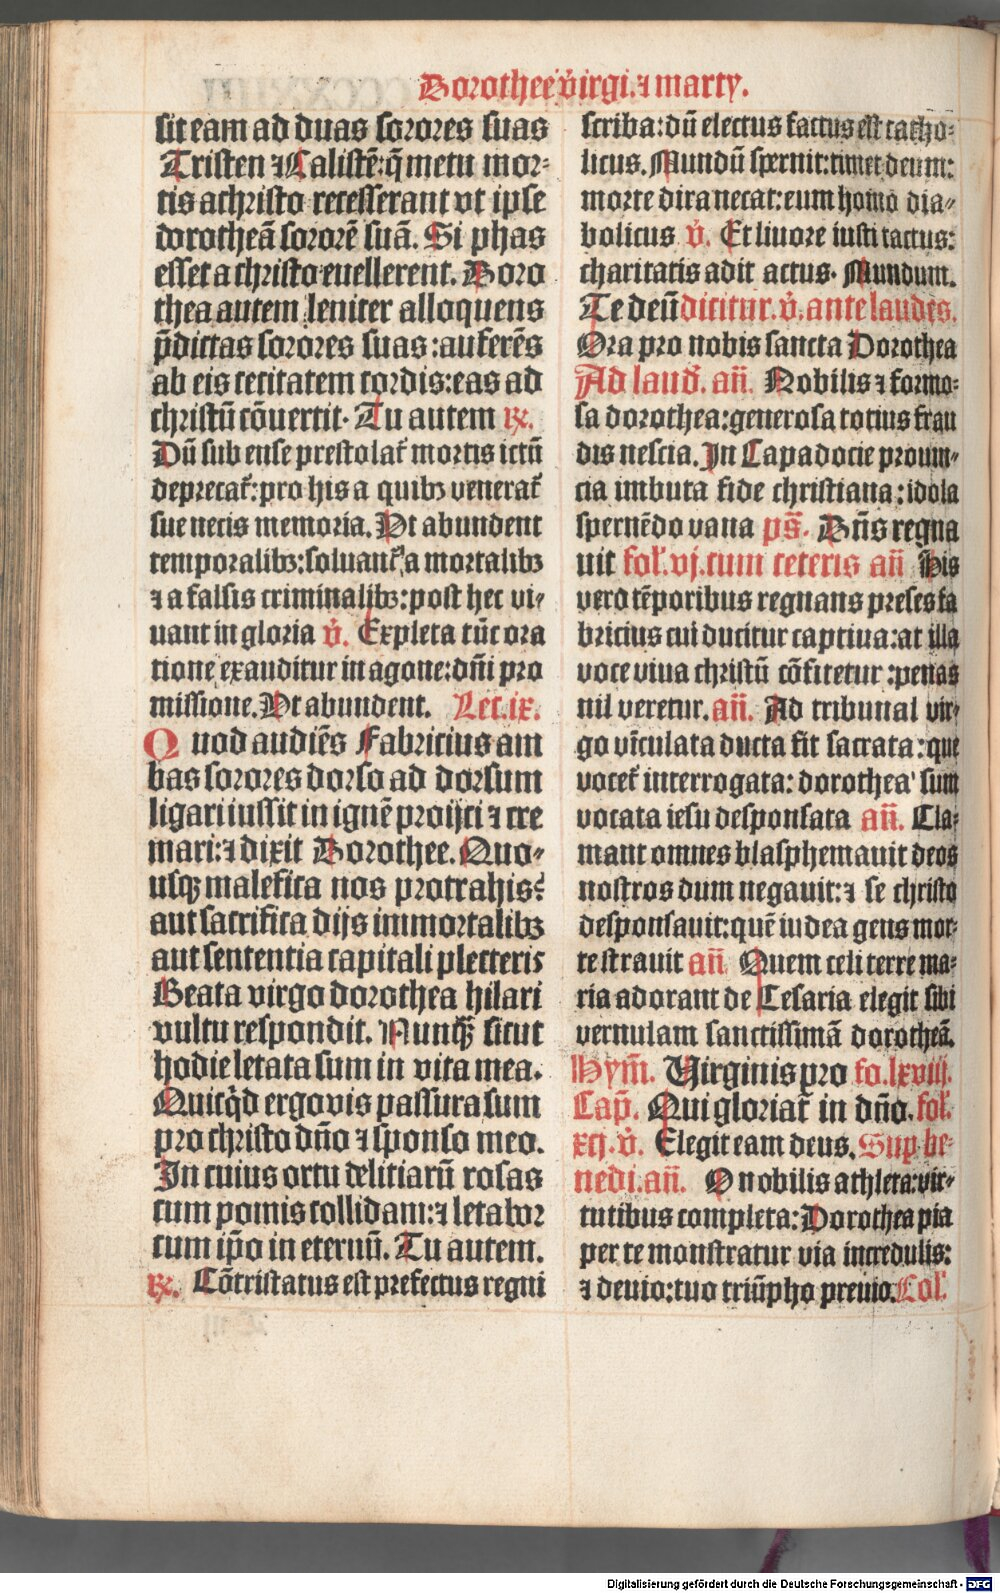 Dorothee v̓irgi. ⁊ marty.
sit eam ad duas sorores suas
Tristen ⁊ Calistē: q̄ metu mor⸗
tis a christo recesserant vt ipse
dorotheā sororē suā. Si phas
esset a christo euellerent. Doro
thea autem leniter alloquens
p̄dictas sorores suas: auferēs
ab eis cecitatem cordis: eas ad
christū cōuertit. Tu autem ℞.
Dū sub ense prestolat᷑ mortis ictū
deprecat᷑: pro his a quibꝫ venerat᷑
sue necis memoria. Vt abundent
temporalibꝫ: soluant᷑ a mortalibꝫ
⁊ a falsis criminalibꝫ: post hec vi⸗
uant in gloria v̓. Expleta tūc ora
tione exauditur in agone: dn̄i pro
missione. Vt abundent. Lec. ix.
Quod audiēs Fabricius am
bas sorores dorso ad dorsum
ligari iussit in ignē proijci ⁊ cre
mari: ⁊ dixit Dorothee. Quo⸗
usqꝫ malefica nos protrahis?
aut sacrifica dijs immortalibꝫ
aut sententia capitali plecteris
Beata virgo dorothea hilari
vultu respondit. Nunqꝫ̄ sicut
hodie letata sum in vita mea.
Quicq̇d ergo vis passura sum
pro christo dn̄o ⁊ sponso meo.
In cuius ortu delitiarū rosas
cum pomis collidam: ⁊ letabor
cum ip̄o in eternū. Tu autem.
℞. Cōtristatus est prefectus regni
scriba: dū electus factus est catho⸗
licus. Mundū spernit: timet deum:
morte dira necat: eum homo dia⸗
bolicus v̓. Et liuore iusti tactus:
charitatis adit actus. Mundum.
Te deū dicitur. v̓. ante laudes.
Ora pro nobis sancta Dorothea
Ad laud̓. an̄. Nobilis ⁊ formo⸗
sa dorothea: generosa totius frau
dis nescia. In Capadocie prouin⸗
cia imbuta fide christiana: idola
spernēdo vana ps̄. Dn̄s regna
uit fol̓. vj. cum ceteris an̄ His
vero tēporibus regnans preses fa
bricius cui ducitur captiua: at illa
voce viua christū cōfitetur: penas
nil veretur. an̄. Ad tribunal vir⸗
go vīculata ducta fit sacrata: que
vocet᷑ interrogata: dorothea sum
vocata iesu desponsata an̄. Cla⸗
mant omnes blasphemauit deos
nostros dum negauit: ⁊ se christo
desponsauit: quē iudea gens mor⸗
te strauit an̄ Quem celi terre ma⸗
ria adorant de Cesaria elegit sibi
vernulam sanctissimā dorotheā.
Hym̄. Virginis pro fo. lxviij.
Cap̄. Qui gloriat᷑ in dn̄o. fol̓.
xcj. v̓. Elegit eam deus. Sup be⸗
nedi. an̄. O nobilis athleta: vir⸗
tutibus completa: Dorothea pia
per te monstratur via incredulis:
⁊ deuio: tuo triūpho preuio. Col̓.
Digitalisierung gefördert durch die Deutsche Forschungsgemeinschaft - DFG